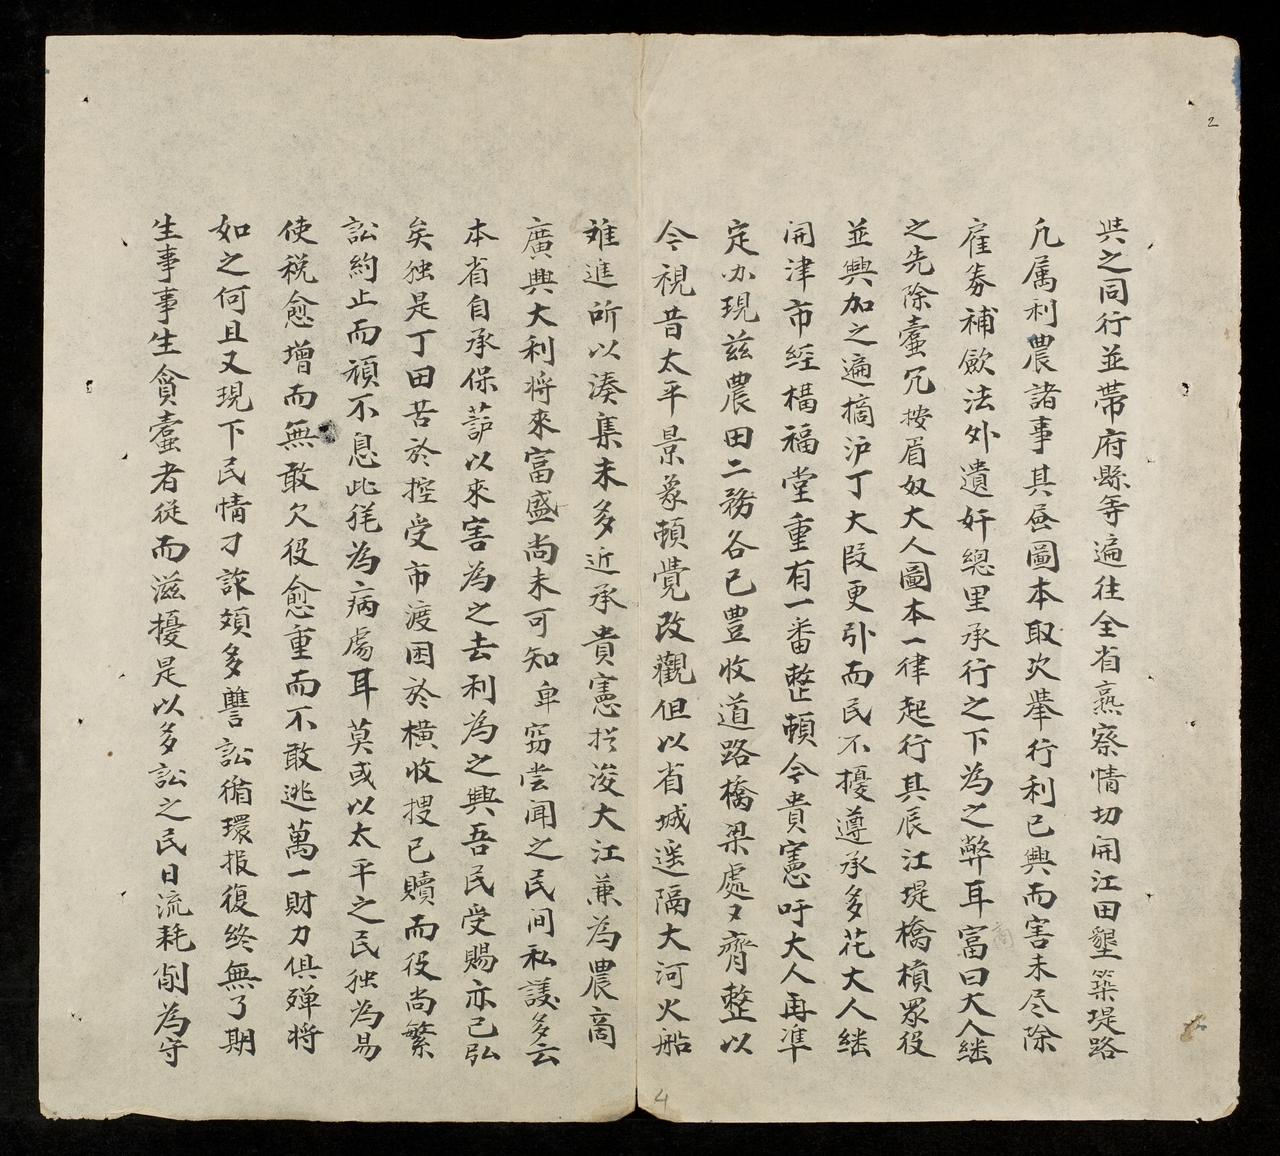 2
與之同行並帶府縣等遍往全省熟察情切開江田墾築堤路
凡属利農諸事其昼圖本取次舉行利已興而害未尽除
雇券補歛法外遺奸總里承行之下為之弊耳富曰大人継
之先除蠹冗按眉奴大人圖本一律起行其辰江堤橋槓眾役
並興加之遍摘沪丁大段更引而民不擾遵承多花大人継
開津市經構福堂重有一番整頓今貴憲吁大人再準
定办現兹農田二務各已豊收道路橋梁處〻齊整以
今視昔太平景象頓覺改觀但以省城遥隔大河火船
难進所以湊集未多近承貴憲拦浚大江兼為農商
廣興大利将來富盛尚未可知卑窃嘗聞之民间私議多云
本省自承保護以來害為之去利為之興吾民受賜亦已弘
矣独是丁田苦於控受市渡困於横收搜已贖而役尚繁
訟約止而頑不息此毦為病處耳莫或以太平之民独為易
使税愈增而無敢欠役愈重而不敢逃萬一財力俱殫将
如之何且又現下民情刁詐頗多讐訟循環报復終無了期
生事事生貪蠹者從而滋擾是以多訟之民日流耗削為守
商
4